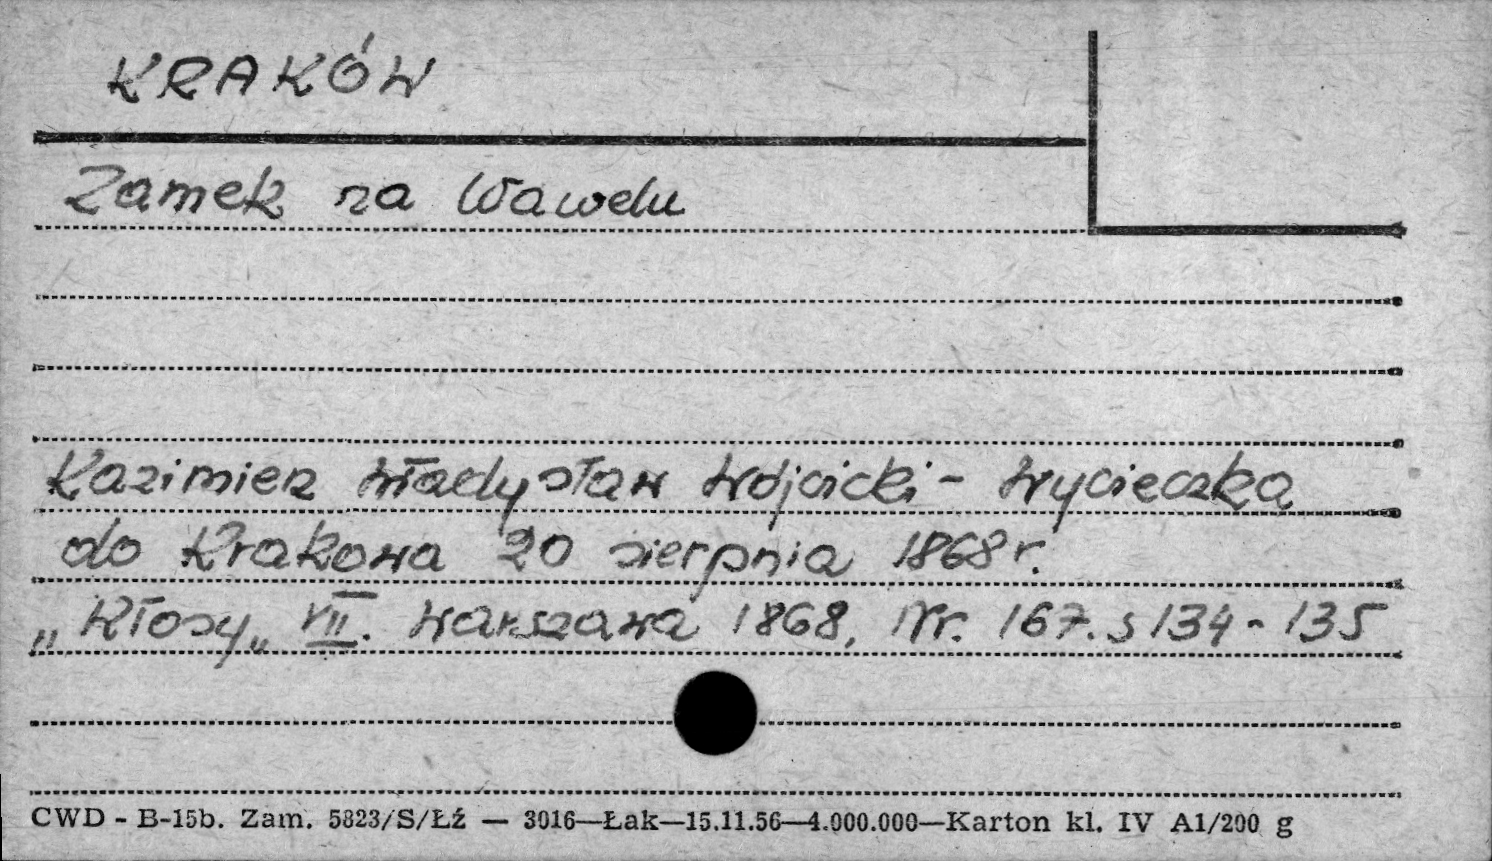 KRAKÓW
Zamek na Wawelu
Kazimierz Władysław Wójcicki - Wycieczka
do Krakowa 20 sierpnia 1868 r.
„Kłosy„ VII. Warszawa 1868, Nr. 167. s 134 - 135
CWD - B-15b. Zam. 5823/S/Łź — 3016—Łak—15.11.56—4.000.000—Karton kl. IV A1/200 g